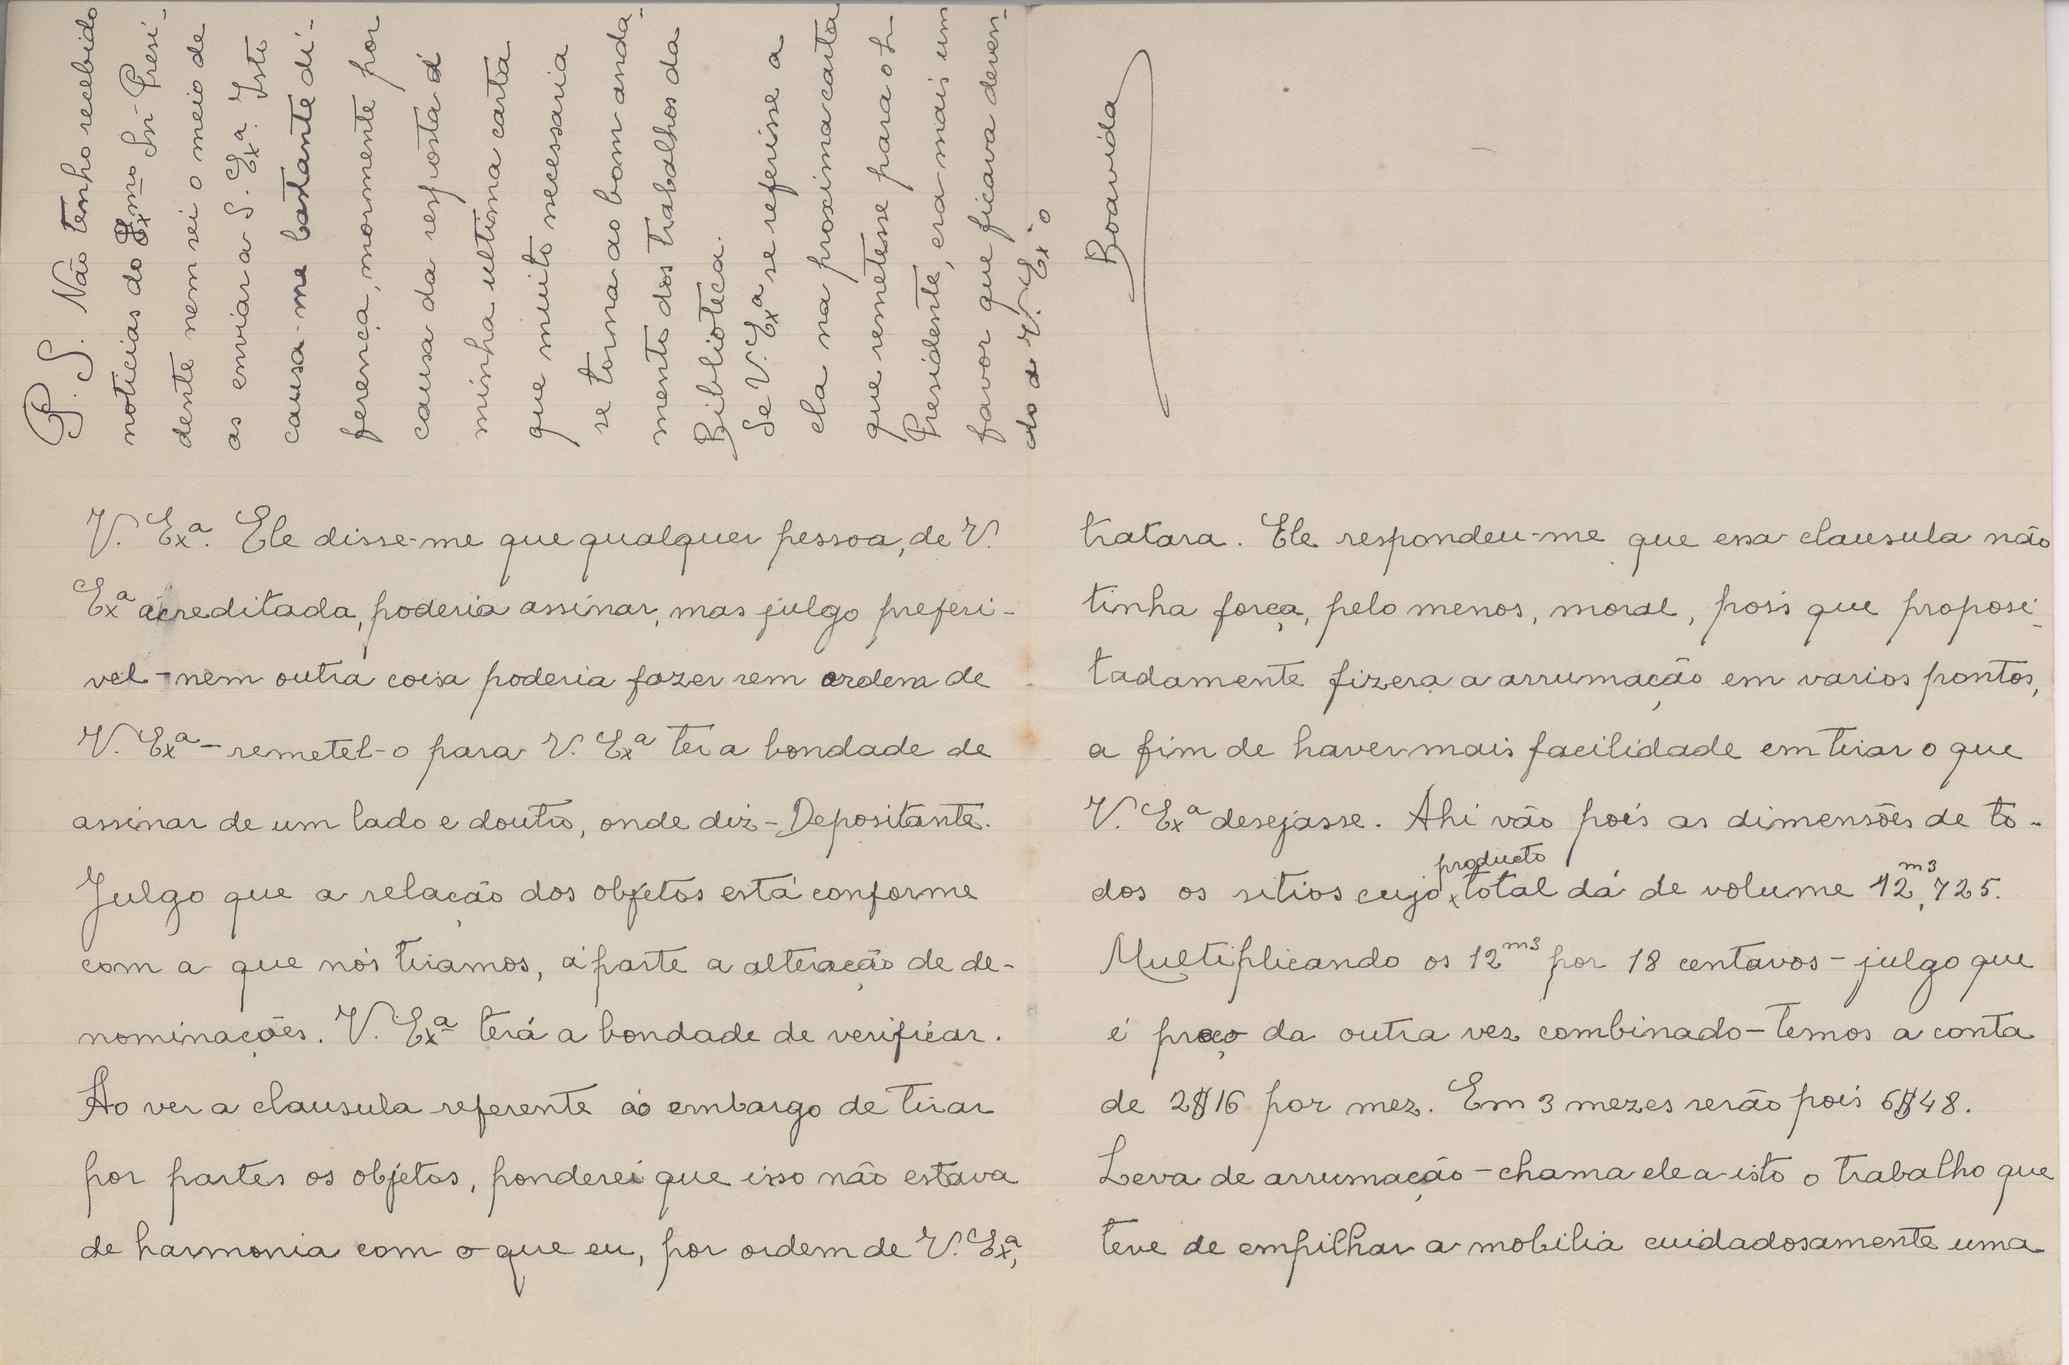 V. Exª. Ele disse-me que qualquer pessoa, de V.
Exª acreditada, poderia assinar, mas julgo preferi-
vel - nem outra coisa poderia fazer sem ordem de
V. Exª - remetel-o para V. Exª ter a bondade de
assinar de um lado e doutro, onde diz - Depositante.
Julgo que a relação dos objetos está conforme
com a que nós tiramos, áparte a alteração de de-
nominações. V. Exª terá a bondade de verificar.
Ao ver a clausula referente ao embargo de tirar
por partes os objetos, ponderei que isso não estava
de harmonia com o que eu, por ordem de V. Exª,
tratara. Ele respondeu-me que essa clausula não
tinha força, pelo menos, moral, pois que proposi-
tadamente fizera a arrumação em varios pontos,
a fim de haver mais facilidade em tirar o que
V. Exª desejasse. Ahi vão pois as dimensões de to-
dos os sitios cujo producto total dá de volume 12,m3 725.
Multiplicando os 12m3 por 18 centavos - julgo que
é preço da outra vez combinado - temos a conta
de 2$16 por mez. Em 3 mezes serão pois 6$48.
Leva de arrumação - chama ele a isto o trabalho que
teve de empilhar a mobilia cuidadosamente uma
P. S. Não tenho recebido
noticias do Exmo Snr Presi-
dente nem sei o meio de
as enviar a S. Exª. Isto
causa-me bastante di-
ferença, mormente por
causa da resposta á
minha ultima carta
que muito necessaria
se torna ao bom anda-
mento dos trabalhos da
Biblioteca.
Se V. Exª se referisse a
ela na proxima carta
que remetesse para o
Presidente, era mais um
favor que ficava deven-
do a V. Exª o
Boavida